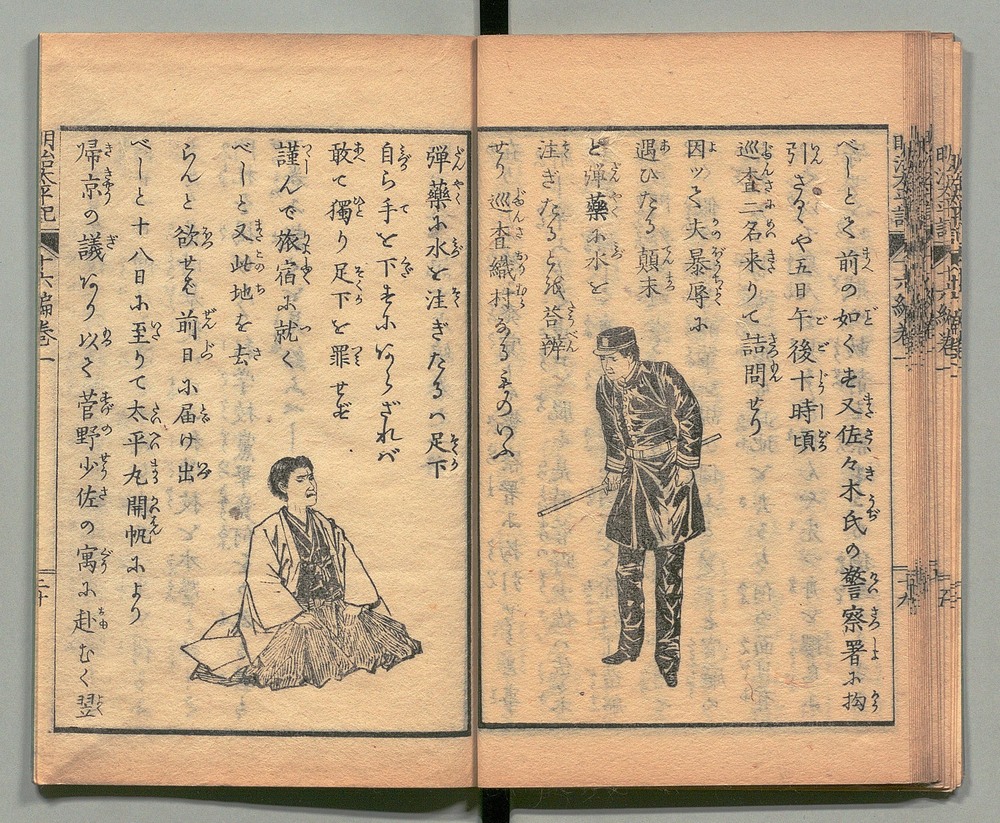 べしとて前の如くも又佐々木氏の警察署に拘
引さるゝや五日午後十時頃
巡査二名来りて詰問せり
因ツて夫暴辱に
遇ひたる顛末
と弾藥に水を
注ぎたると答辨
せり 巡査織村なるものいふ
弾藥に水を注ぎたるハ足下
自ら手を下すにあらざれバ
敢て獨り足下を罪せず
謹んで旅宿に就く
べしと又此地を去
らんと欲せば前日に届け出
べしと十八日に至りて太平丸開帆により
帰京の議あり以て菅野少佐の寓に赴むく翌
明治太平記
十六編巻一
二十
明治太平記
十六編巻一
十九